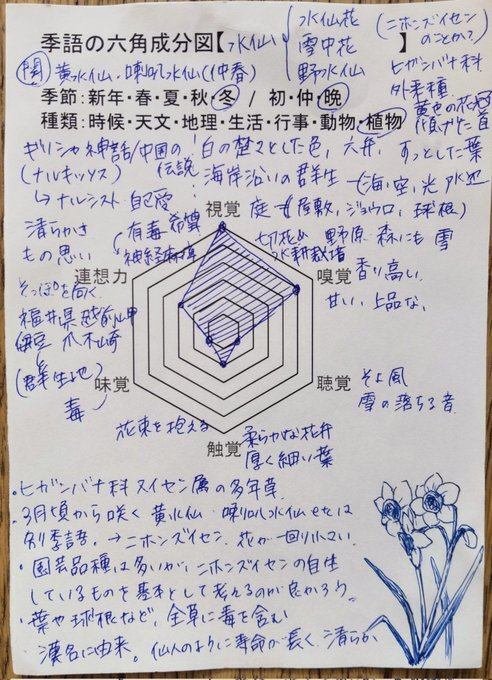 季語の六角成分図【水仙】
水仙花
雪中花
野水仙
(ニホンズイセンのことか?)
ヒガンバナ科
外来種
黄色の花心
傾げた首
関 黄水仙・喇叭水仙(仲春)
季節:新年・春・夏・秋・冬 / 初・仲・晩
種類:時候・天文・地理・生活・行事・動物・植物
ギリシャ神話
(ナルキッソス)
↳ナルシスト 自己愛
中国の伝説
白の楚々とした色, 六弁, すっとした葉
海岸沿いの群生 (海, 空, 光 水辺
庭 (屋敷, ジョウロ, 球根)
切花 水耕栽培 野原 森にも 雪
清らかさ
もの思い
有毒 希算
神経麻痺
視覚
連想力
嗅覚
香り高い
甘い, 上品な,
そっぽを向く
福井県越前岬
伊豆 爪木崎
(群生地)
味覚
毒
聴覚
そよ風
雪の落ちる音
花束を抱える
触覚
柔らかな花弁
厚く細い葉
・ヒガンバナ科スイセン属の多年草.
・3月頃から咲く 黄水仙・喇叭水仙 etcは
別季語. →ニホンズイセン. 花が一回り小さい.
・園芸品種は多いが, ニホンズイセンの自生
しているものを基本として考えるのが良かろう.
・葉や球根など, 全草に毒を含む
・漢名に由来。仙人のように寿命が長く, 清らか